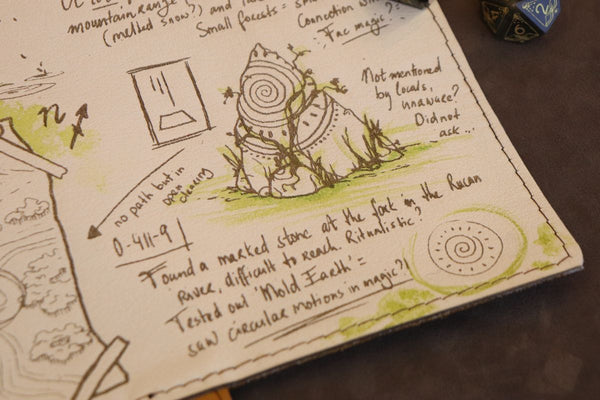 mountain range
(melted snow?) and
Small forests =
Connection
Fae magic?
Not mentioned
by locals,
unaware?
Did not
ask...
n
no path but in
open clearing
0-411-9
Found a marked stone at the fork in the Rucan
River, difficult to reach. Ritualistic?
Tested out 'Mold Earth' =
saw circular motions in magic?!